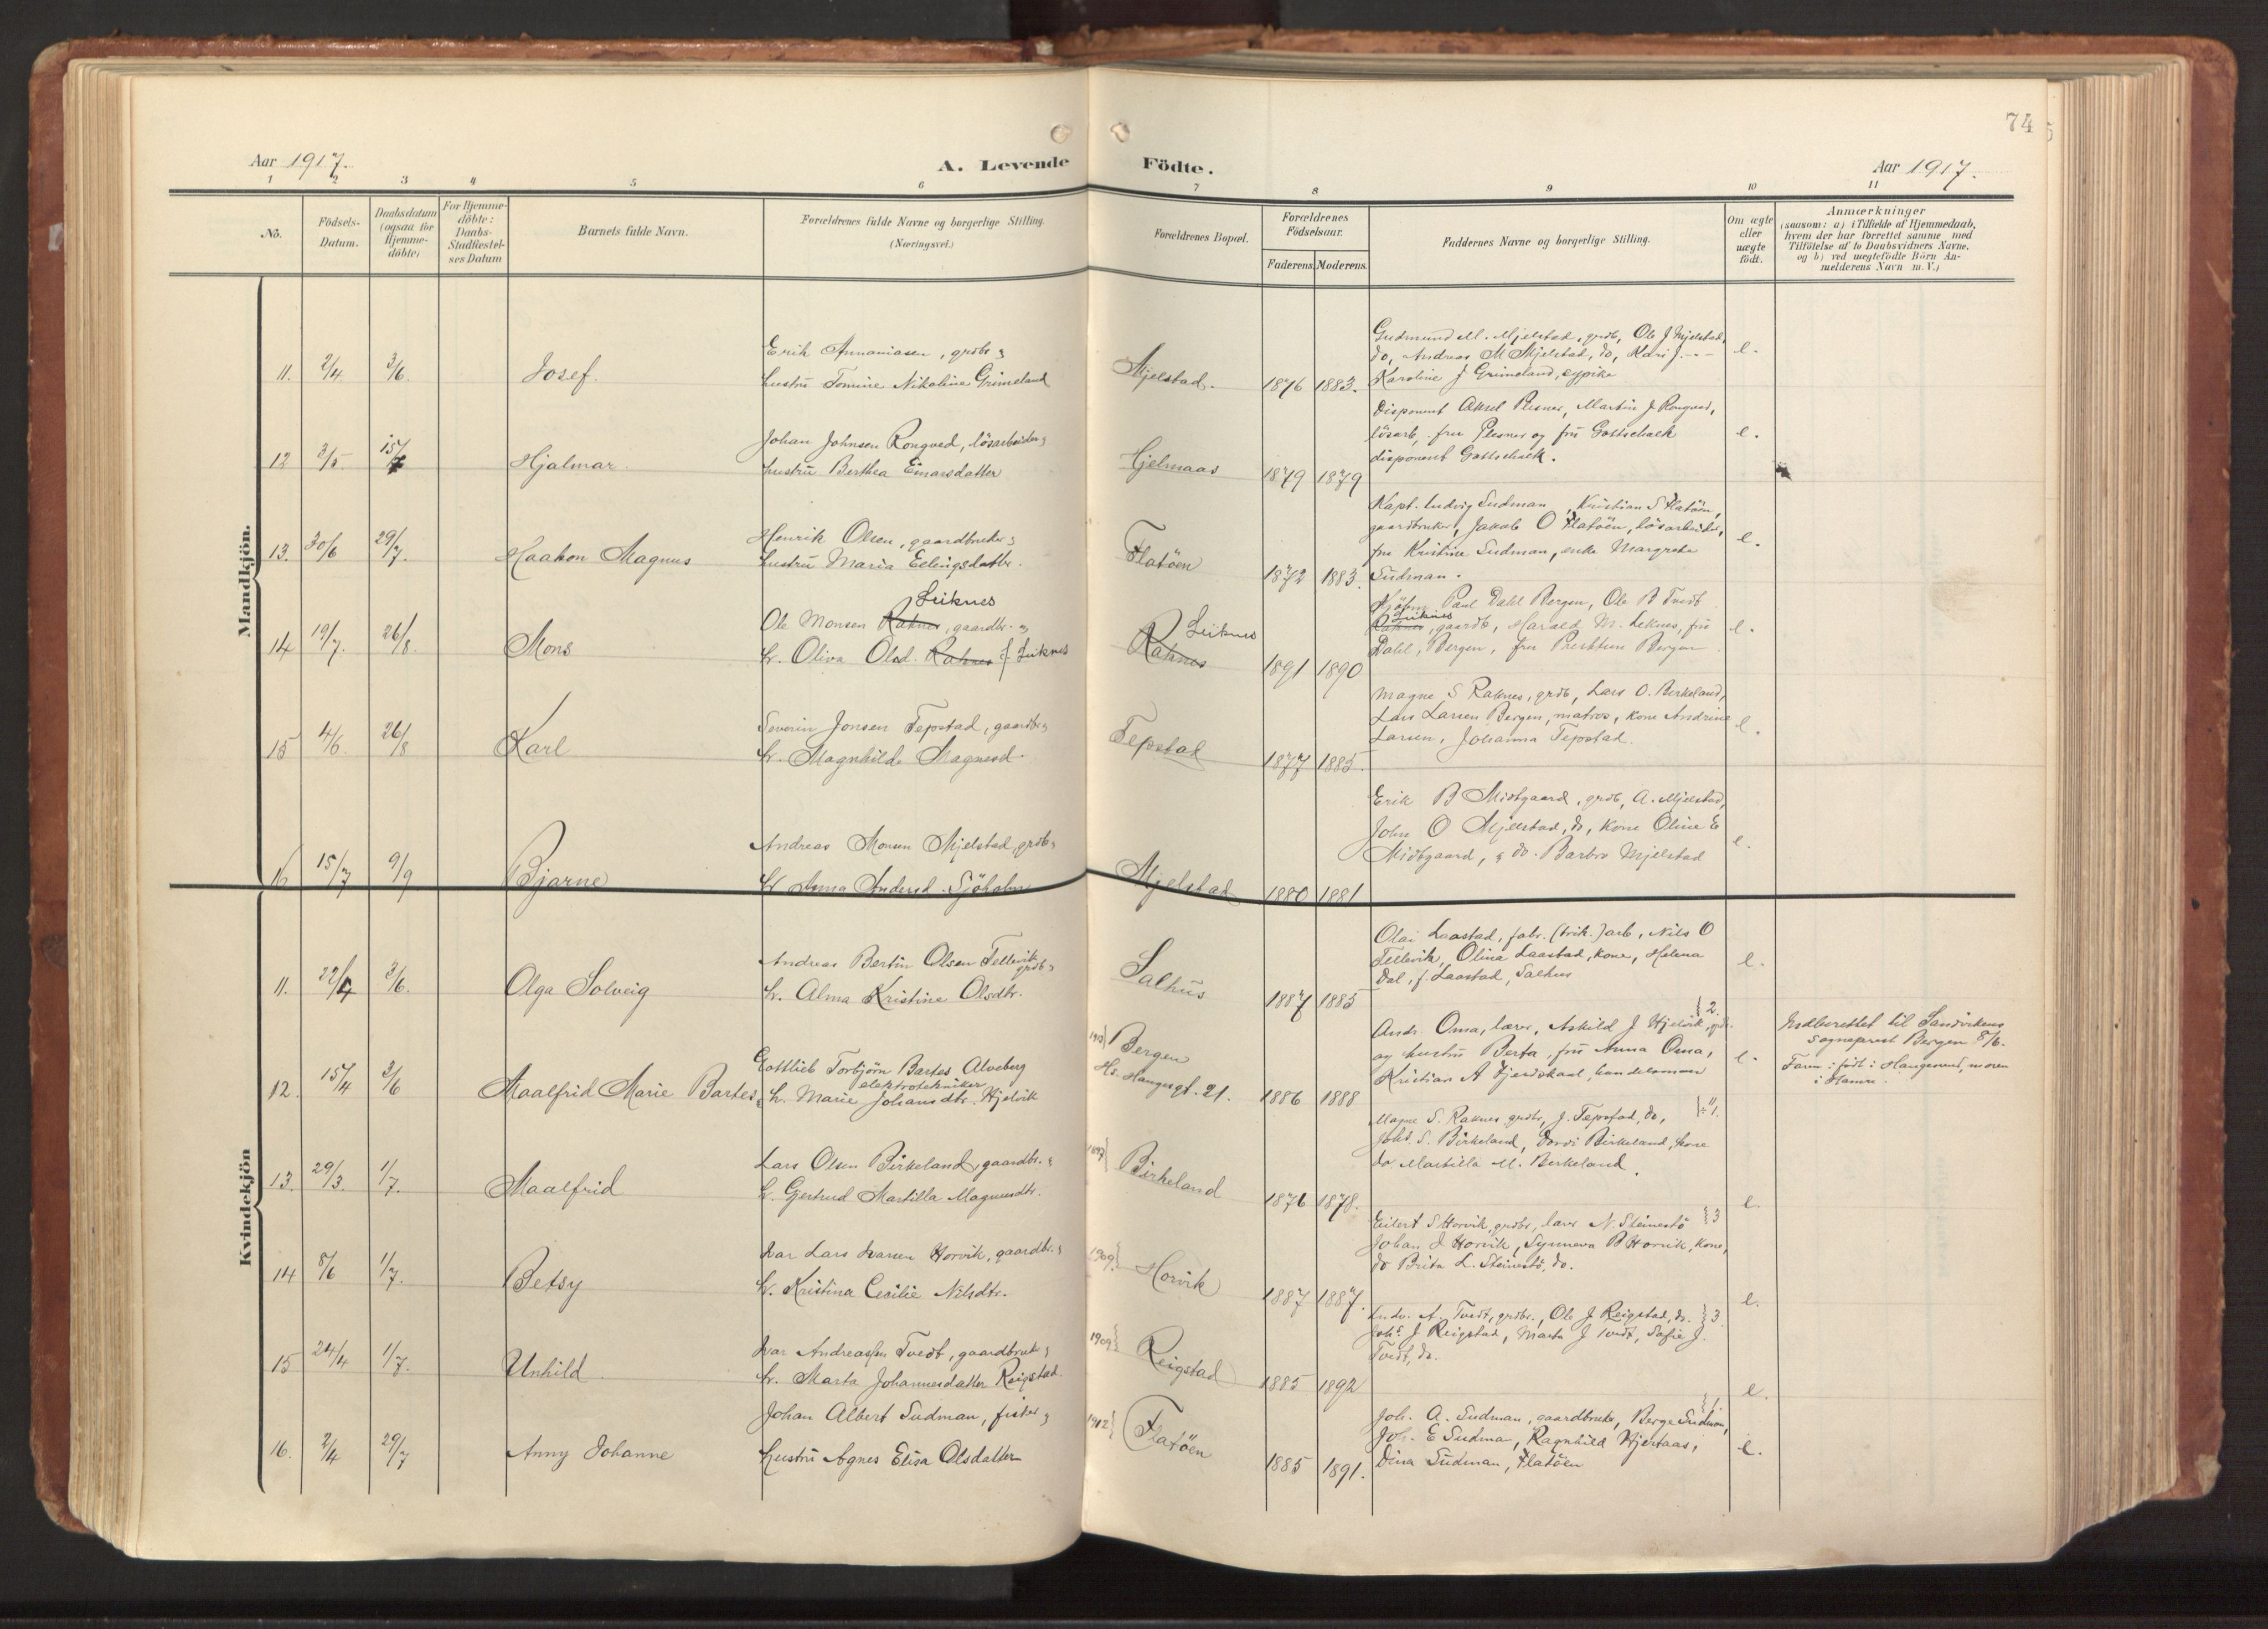 74
Aar 1917.
A. Levende Födte.
Aar 1917.
1 2 3 4 5 6 7 8 9 10 11
No.
Födsels-
Datum.
Daabsdatum
(ogsaa for
Hjemme-
döbte)
For Hjemme-
döbte:
Daabs-
Stadfæstel-
ses Datum
Barnets fulde Navn.
Forældrenes fulde Navne og borgerlige Stilling.
(Næringsvei.)
Forældrenes Bopæl.
Forældrenes
Födselsaar.
Faderens. Moderens.
Faddernes Navne og borgerlige Stilling.
Om ægte
eller
uægte
födt.
Anmærkninger
(saasom: a) i Tilfælde af Hjemmedaab,
hvem der har forrettet samme med
Tilföielse af to Daabsvidners Navne,
og b) ved uægtefödte Börn An-
melderens Navn m. V.)
Mandkjön.
11. 2/4 3/6. Josef.
Erik Annaniasen, grdbr &
hustru Tomine Nikoline Grimeland
Mjelstad. 1876 1883.
Gudmund M. Mjelstad, grdb, Ole J Mjelstad,
do, Andreas M Mjelstad, do, Kari J. -
Karoline J Grimeland, e.
12 3/5 15/7 Hjalmar.
Johan Johnsen Rongved, lösarbeider &
hustru Berthea Einarsdatter
Hjelmaas 1879 1879
Disponent Aksel Plesner, Martin J Rongved,
lösarb, fru Plesner og fru Gottschalk
disponent Gottschalk. e.
13. 30/6 29/7. Haakon Magnus
Henrik Olsen, gaardbruker &
hustru Maria Ellingsdatter.
Flatöen 1872 1883.
Kapt. Ludvig Sudman, Kristian S Flatöen,
gaardbruker, Jakob O Flatöen, lösarbeider,
fru Kristine Sudman, enke Margrete
Sudman. e.
14 19/7. 26/8. Mons
Leiknes
Ole Monsen Raknes, gaardbr. &
h. Oliva Olsd. Raknes f. Leiknes
Leiknes
Raknes 1891 1890
Paul Dahl Bergen, Ole B Tvedt
Leiknes
Raknes, gaardb, Harald M. Leknes, fru
Dahl, Bergen, fru Bergen e.
15 4/6. 26/8 Karl
Severin Jonsen Tepstad, gaardbr &
h. Magnhild Magnesd.
Tepstad 1877 1885.
Magne S Raknes, grdb, Lars O. Birkeland,
Lars Larsen Bergen, matros, kone Andrine
Larsen, Johanna Tepstad. e.
16 15/7 9/9 Bjarne
Andreas Monsen Mjelstad, grdb &
h Anna Andersd. Sjöholm
Mjelstad 1880 1881
Erik B Midtgaard, grdb, A. Mjelstad,
John O Mjelstad, do, kone Oline E
Midtgaard, & do. Barbro Mjelstad e.
Kvindekjön
11. 22/4 3/6. Olga Solveig
Andreas Bertin Olsen Tellevik
grdb &
h. Alma Kristine Olsdtr.
Salhus 1887 1885
Olai Laastad, fabr. (trik.) arb, Nils O
Tellevik, Olina Laastad, kone, Helena
Dal, f. Laastad, Salhus e.
12. 15/4 3/6 Maalfrid Marie Bartes
Gottlieb Torbjörn Bartes Alveberg
elektrotekniker
& h. Marie Johansdtr. Hjelvik
Bergen
Hs. Haugesgt. 21. 1886 1888
2.
Andr. Oma, lærer, Askild J Hjelvik, grdb.
og hustru Berta, fru Anna Oma,
Kristian A Fjeldskaal, handelsmann e.
Indberettet til Sandvikens
sogneprest Bergen 8/6.
Faren: födt i Haugesund, moren
i Hamre.
13. 29/3. 1/7. Maalfrid
Lars Olsen Birkeland, gaardbr. &
h. Gjertrud Martilla Magnusdtr.
1897 Birkeland 1876 1878.
Magne S. Raknes, grdbr, J. Tepstad, do,
Johs. S. Birkeland, Dordi Birkeland, kone
do Martilla M. Birkeland. e.
14 8/6 1/7. Betsy
Ivar Lars Ivarsen Horvik, gaardbr. &
h. Kristina Cecilie Nilsdtr.
1909 Horvik 1887 1887.
3
Eilert S Horvik, grdbr, Lars N. Steinestö
Johan I Horvik, Synneva B Horvik, kone,
do Brita L. Steinestö, do. e.
15 24/4 1/7. Unhild
Ivar Andreassen Tvedt, gaardbruk &
h. Marta Johannesdatter Reigstad.
1909 Reigstad 1885 1892
3.
Andr. A. Tvedt, grdbr., Ole J Reigstad, do.
Johs. J Reigstad, Marta J Tvedt, Sofie J.
Tvedt, do. e.
16. 2/4 29/7 Anny Johanne
Johan Albert Sudman, fisker &
hustru Agnes Elisa Olsdatter
1912 Flatöen 1885 1891.
1.
Joh. A. Sudman, gaardbruker, Berge Sudman,
Joh. E Sudman, Ragnhild Hjertaas,
Dina Sudman, Flatöen e.